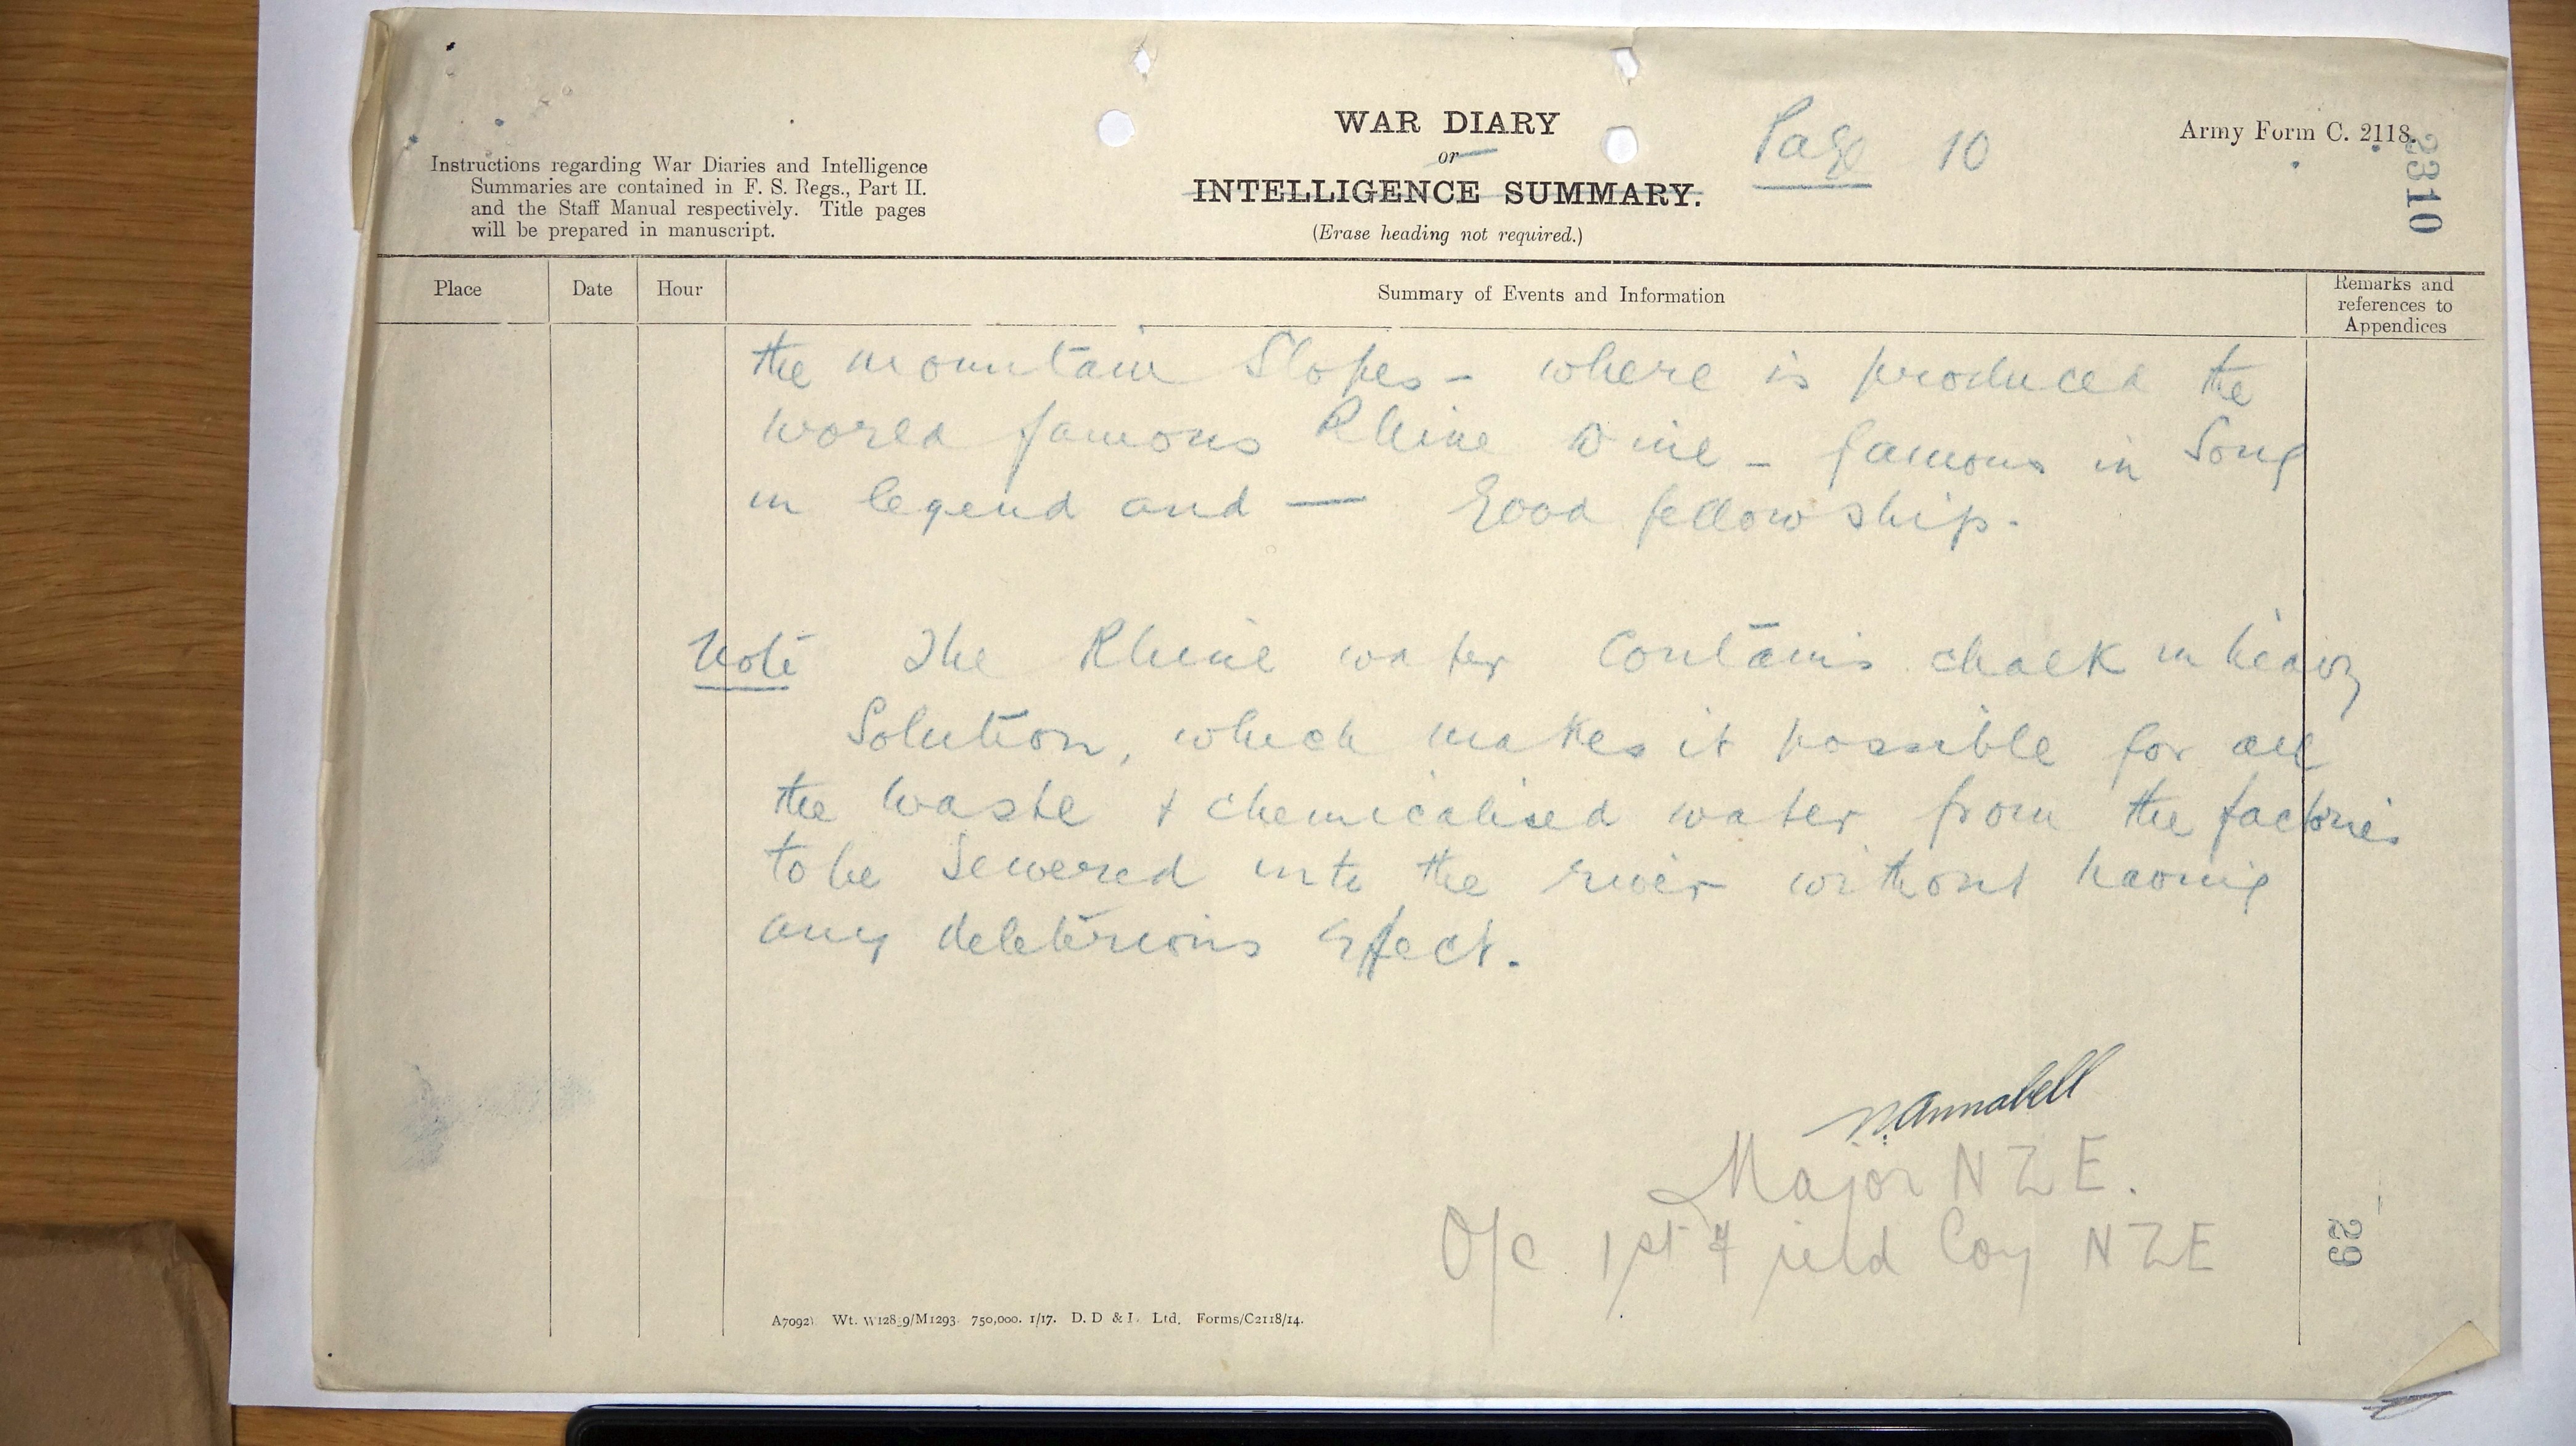 WAR DIARY
or
INTELLIGENCE SUMMARY.
(Erase heading not required.)
Page 10
Army Form C. 2118.
2310
Instructions regarding War Diaries and Intelligence
Summaries are contained in F. S. Regs., Part II.
and the Staff Manual respectively. Title pages
will be prepared in manuscript.
Place Date Hour Summary of Events and Information Remarks and references to Appendices
the mountain Slopes - where is produced the
world famous Rhine Wine - famous in Song
in legend and — Good fellowship.
Note The Rhine water Contains chalk in heavy
Solution, which makes it possible for all
the waste + chemicalised water from the factories
to be Sewered into the river without having
any deleterious effect.
N. Annabell
Major NZE.
O/c 1st Field Coy NZE
29
750,000. 1/17. Ltd. Forms/C2118/14.